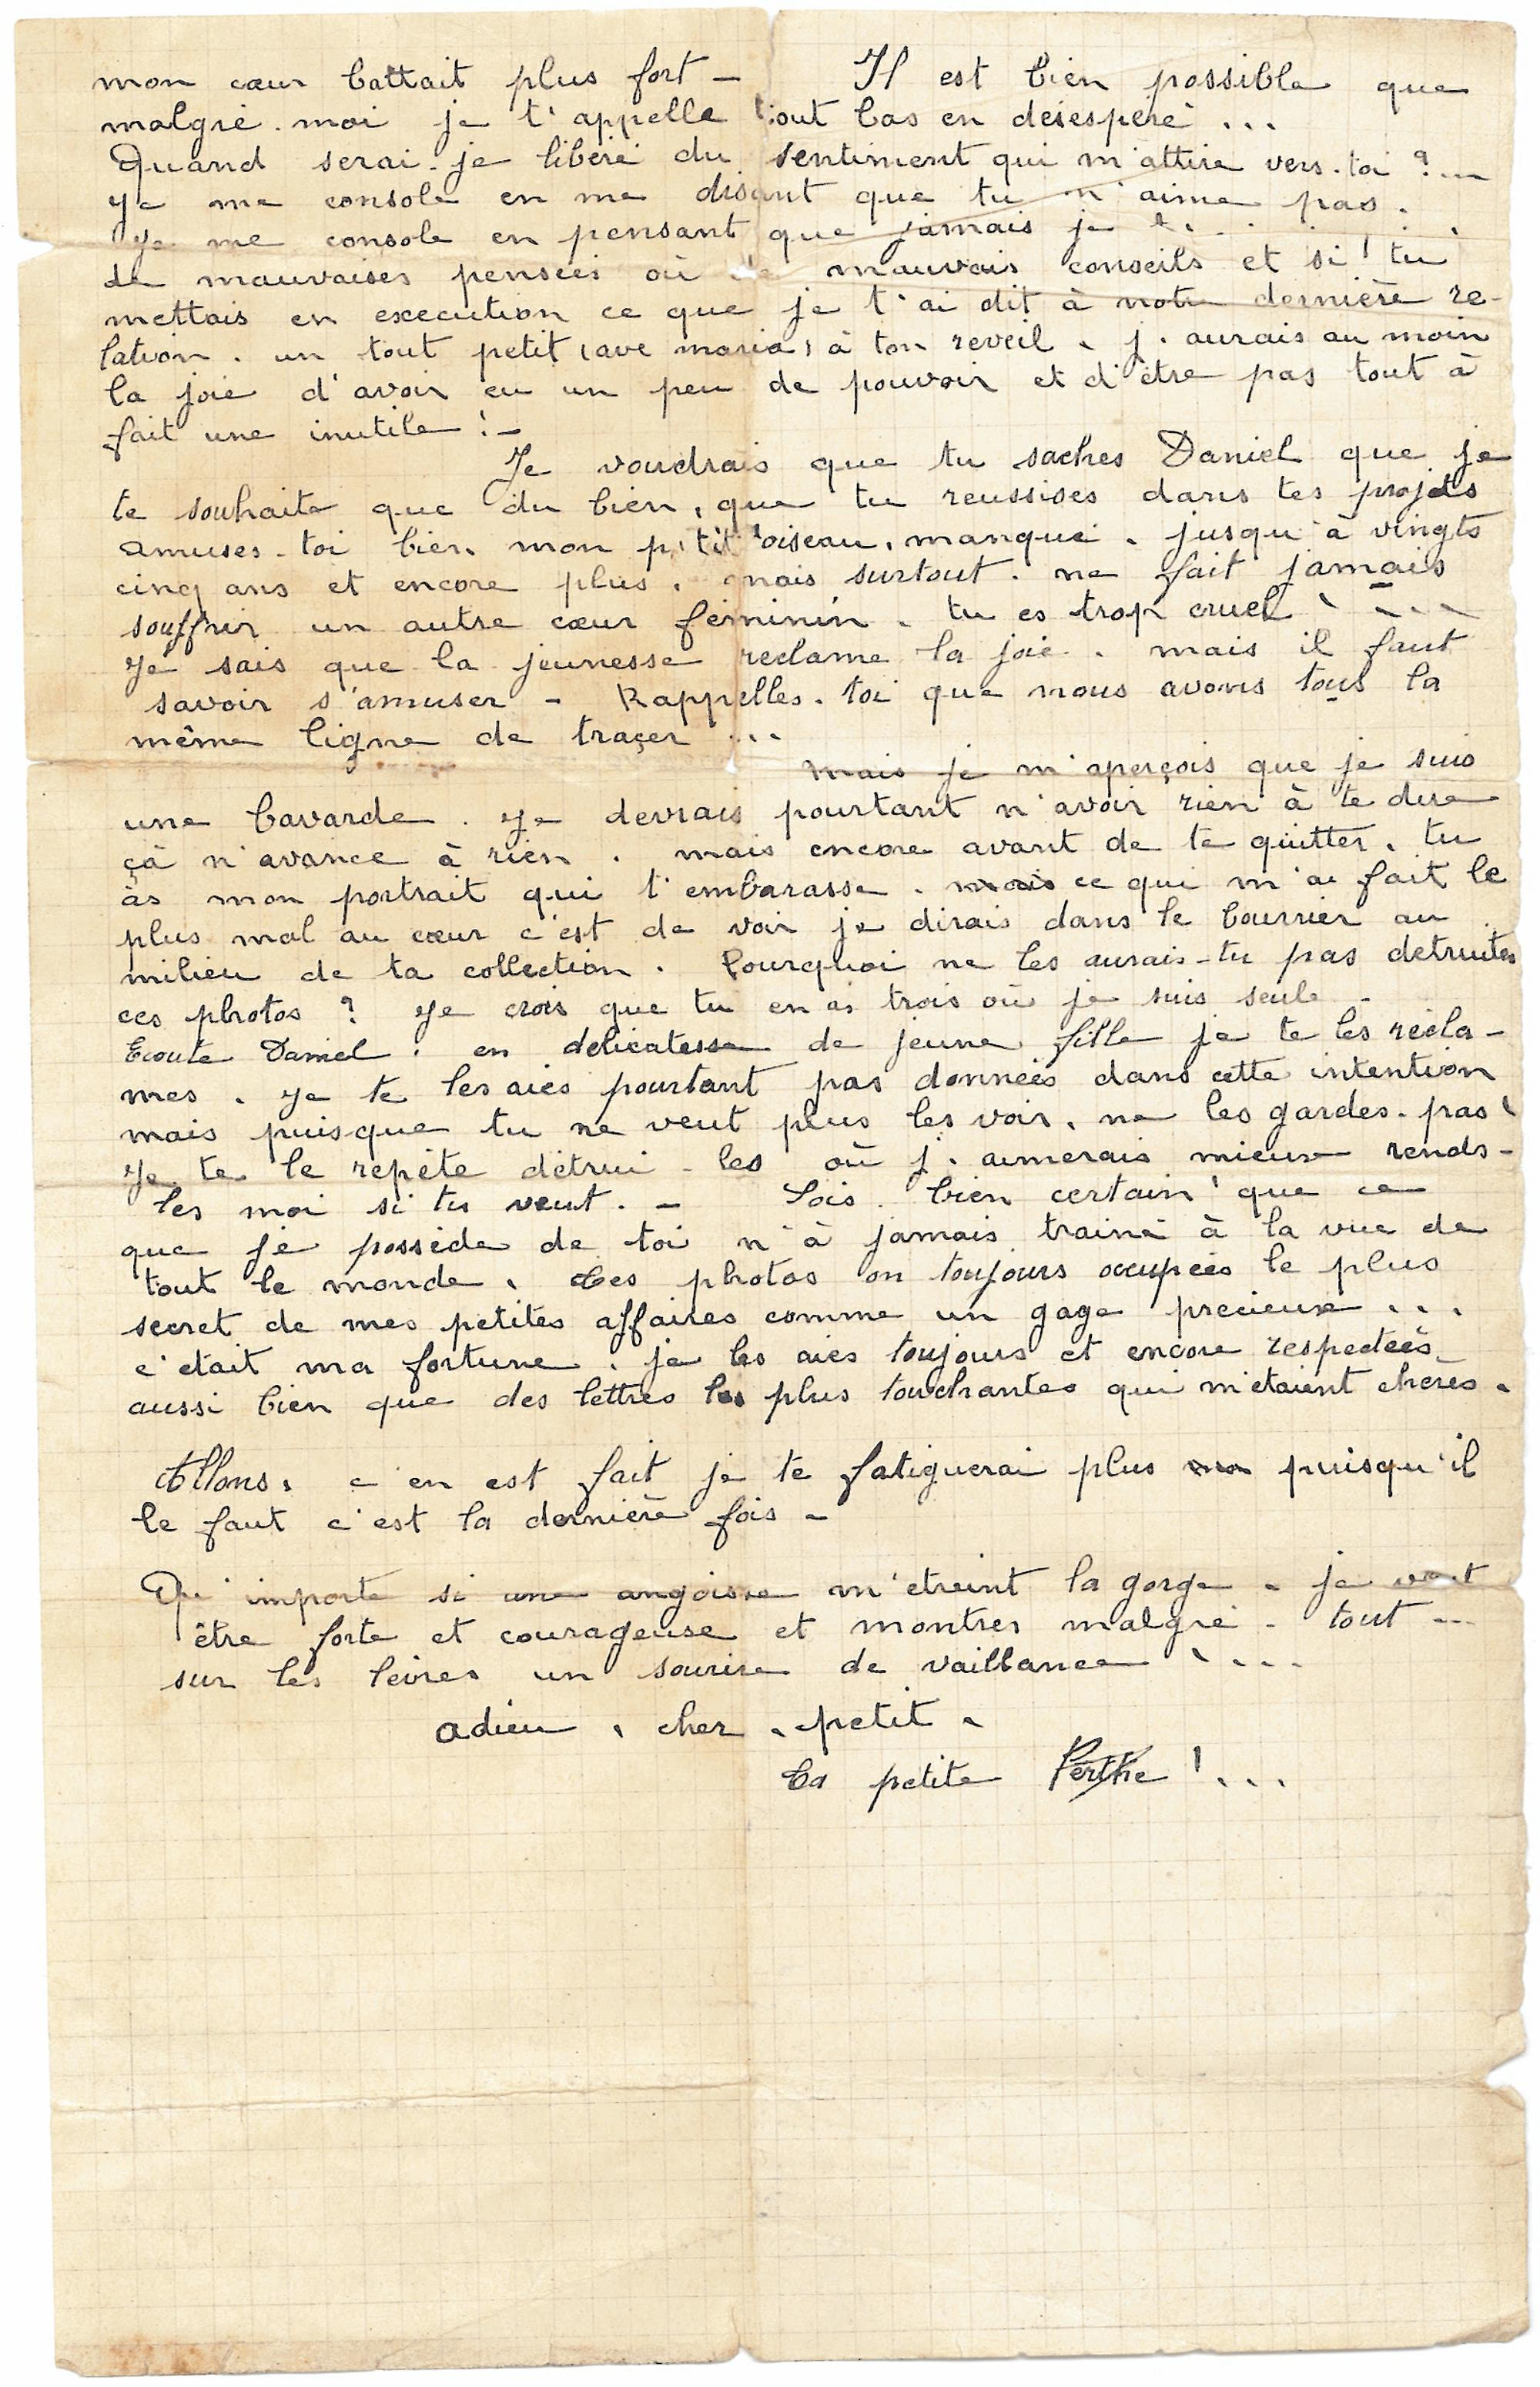 mon cœur battait plus fort – Il est bien possible que
malgré-moi je t'appelle tout bas en désespéré ...
Quand serai-je libéré du sentiment qui m'attire vers-toi ?...
Je me console en me disant que tu n'aime pas.
Je me console en pensant que jamais je
de mauvaises pensées où de mauvais conseils et si ! tu
mettais en execution ce que je t'ai dit à notre dernière re-
lation. un tout petit (ave maria) à ton reveil. j'aurais au moin
la joie d'avoir eu un peu de pouvoir et d'être pas tout à
fait une inutile !–
Je voudrais que tu saches Daniel que je
te souhaite que du bien, que tu reussises dans tes projets
amuses-toi bien mon p'tit oiseau, manqué. jusqu'à vingts
cinq ans et encore plus. mais surtout. ne fait jamais
souffrir un autre cœur féminin. tu es trop cruel ! ...
Je sais que la jeunesse reclame la joie. mais il faut
savoir s'amuser – Rappelles-toi que nous avons tous la
même ligne de traçer ...
Mais je m'aperçois que je suis
une bavarde. Je devrais pourtant n'avoir rien à te dire
çà n'avance à rien. mais encore avant de te quitter. tu
às mon portrait qui t'embarasse. mais ce qui m'a fait le
plus mal au cœur c'est de voir je dirais dans le bourrier au
milieu de ta collection. Pourquoi ne les aurais-tu pas detruites
ces photos ? Je crois que tu en as trois où je suis seule –
Ecoute Daniel. en délicatesse de jeune fille je te les récla-
mes. Je te les aies pourtant pas données dans cette intention
mais puisque tu ne veut plus les voir, ne les gardes-pas !
Je te le repète détrui-les où j'aimerais mieux rends-
les moi si tu veut. – Sois bien certain ! que ce
que je possède de toi n'à jamais trainé à la vue de
tout le monde. Ces photos on toujours occupées le plus
secret de mes petites affaires comme un gage precieux ...
c'était ma fortune. je les aies toujours et encore respectées
aussi bien que des lettres les plus touchantes qui m'étaient chères.
Allons, c'en est fait je te fatiguerai plus puisqu'il
le faut c'est la dernière fois –
Qu'importe si une angoisse m'étreint la gorge – je veut
être forte et courageuse et montrer malgré-tout ...
sur les lèvres un sourire de vaillance ! ...
adieu, cher petit.
Ta petite Berthe ! ...